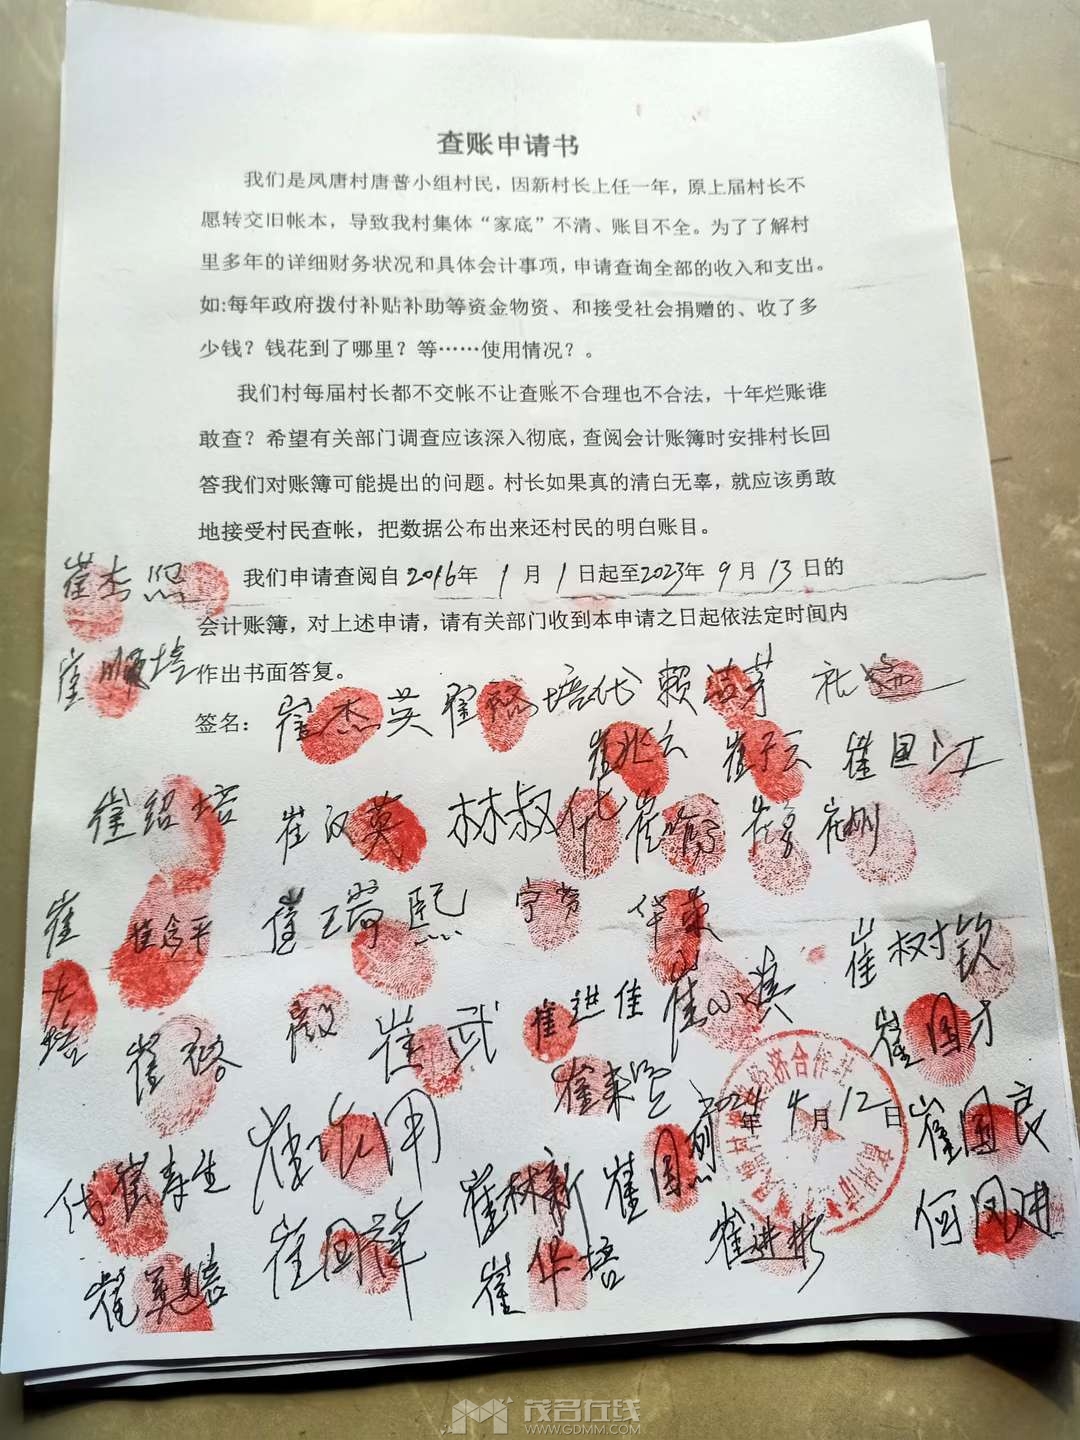 查账申请书
我们是凤唐村唐普小组村民，因新村长上任一年，原上届村长不
愿转交旧帐本，导致我村集体“家底”不清、账目不全。为了了解村
里多年的详细财务状况和具体会计事项，申请查询全部的收入和支出。
如:每年政府拨付补贴补助等资金物资、和接受社会捐赠的、收了多
少钱？钱花到了哪里？等……使用情况？。
我们村每届村长都不交帐不让查账不合理也不合法，十年烂账谁
敢查？希望有关部门调查应该深入彻底，查阅会计账簿时安排村长回
答我们对账簿可能提出的问题。村长如果真的清白无辜，就应该勇敢
地接受村民查帐，把数据公布出来还村民的明白账目。
崔杰熙
我们申请查阅自2016年1月1日起至2023年9月13日的
会计账簿，对上述申请，请有关部门收到本申请之日起依法定时间内
崔顺培
作出书面答复。
签名：崔杰英
崔兆云 崔子云 崔国江
崔绍培 崔汉英 林叔
崔念平 崔瑞熙
华荣
崔树钦
崔武 崔进佳
崔国才
经济合作社
2024年4月12日
崔国良
代崔寿生
崔林新 崔国烈
崔国祥
崔华培 崔进彬 何凤进
茂名在线
WWW.GDMM.COM